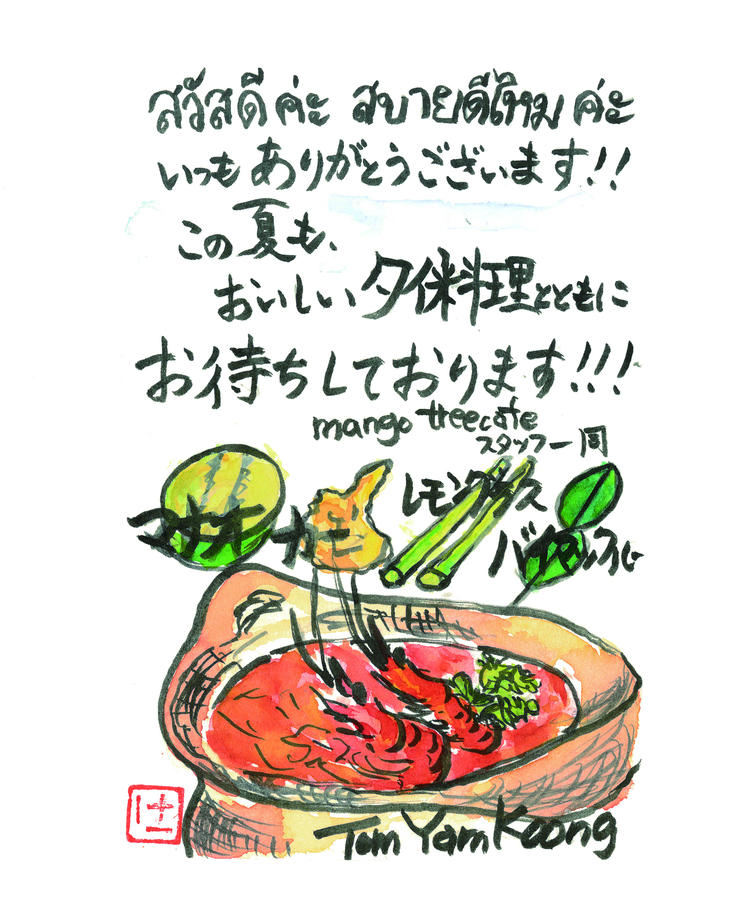 สวัสดีค่ะ สบายดีไหมค่ะ
いつもありがとうございます!!
この夏も、
おいしいタイ料理とともに
お待ちしております!!!
mango treecafe
スタッフ一同
マナオ
カー
レモングラス
Tom Yam Koong